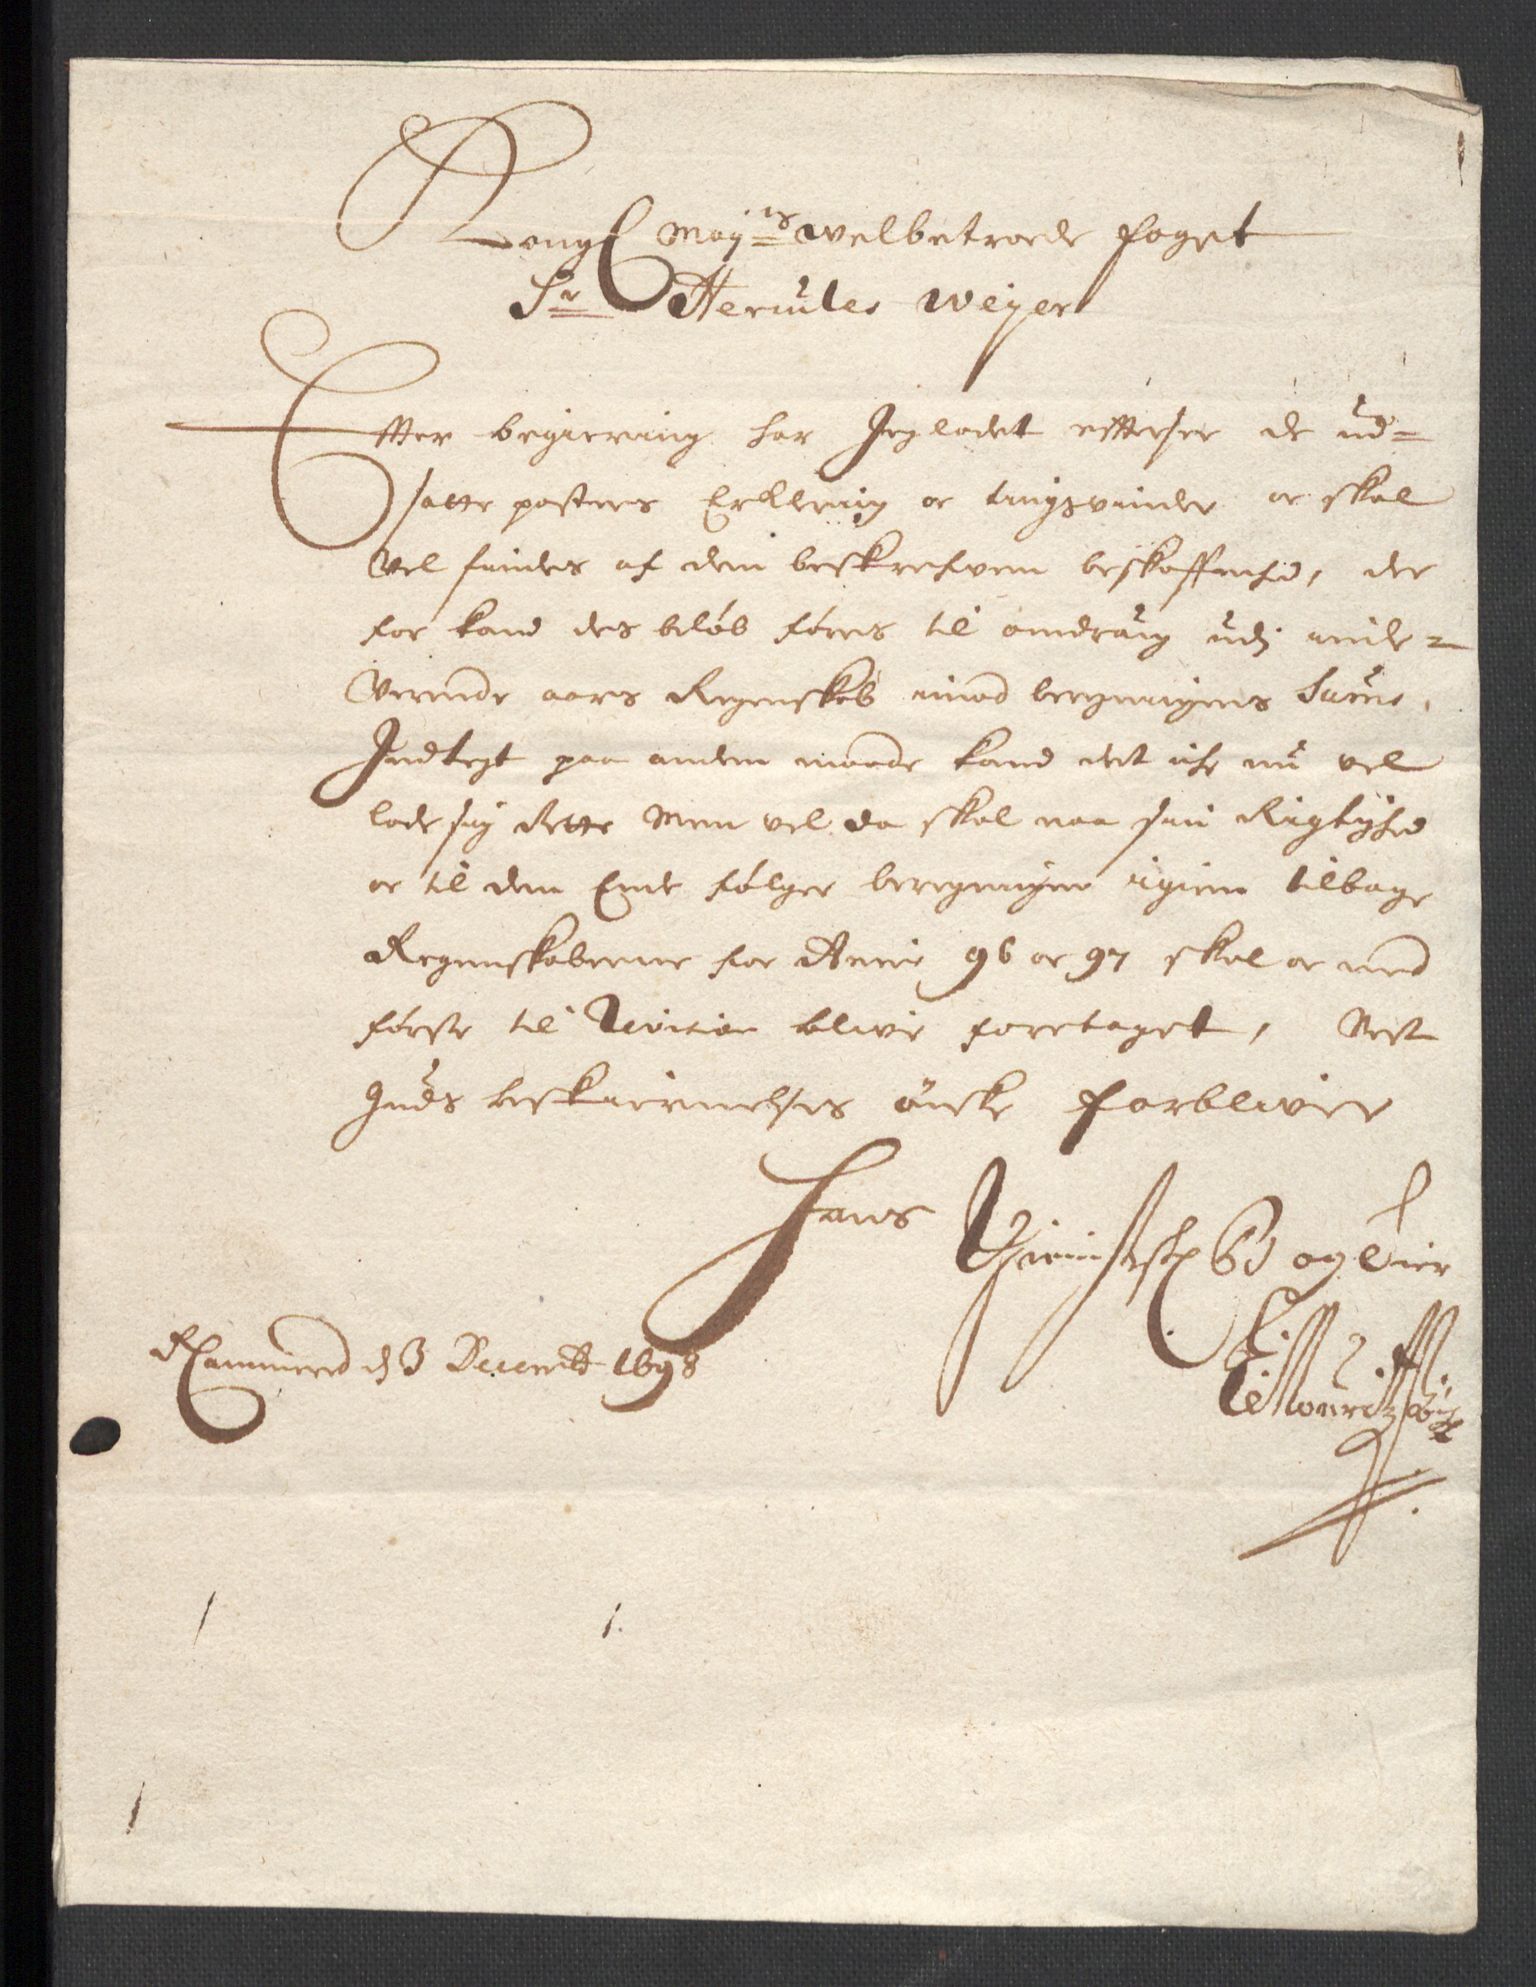 Kongl May.ts welbetroede foget
Sr Hercules Weyer
Efter begiering har Jeg ladet efftersee de ud-
satte posters Erklering oc tingsvinder oc skal
Vel findes af dem beskrefvem beskaffenhd, der
for kand des beløb føris til omdrag udj inde-
Verende aars Regenskab imod beregningens Sum.
Indtegt paa anden maade kand det iche nu vel
lade sig Rette Men vel da skal naa sin Rigtighed
oc til dem Ende følger beregningen igien tilbage
Regenskaberne for Anno 96 oc 97 skal oc med
første til Revision blive foretaget, Nest
Guds beskiermelses ønske forblivir
Hans
og
RCammered d 3 Decemb 1698